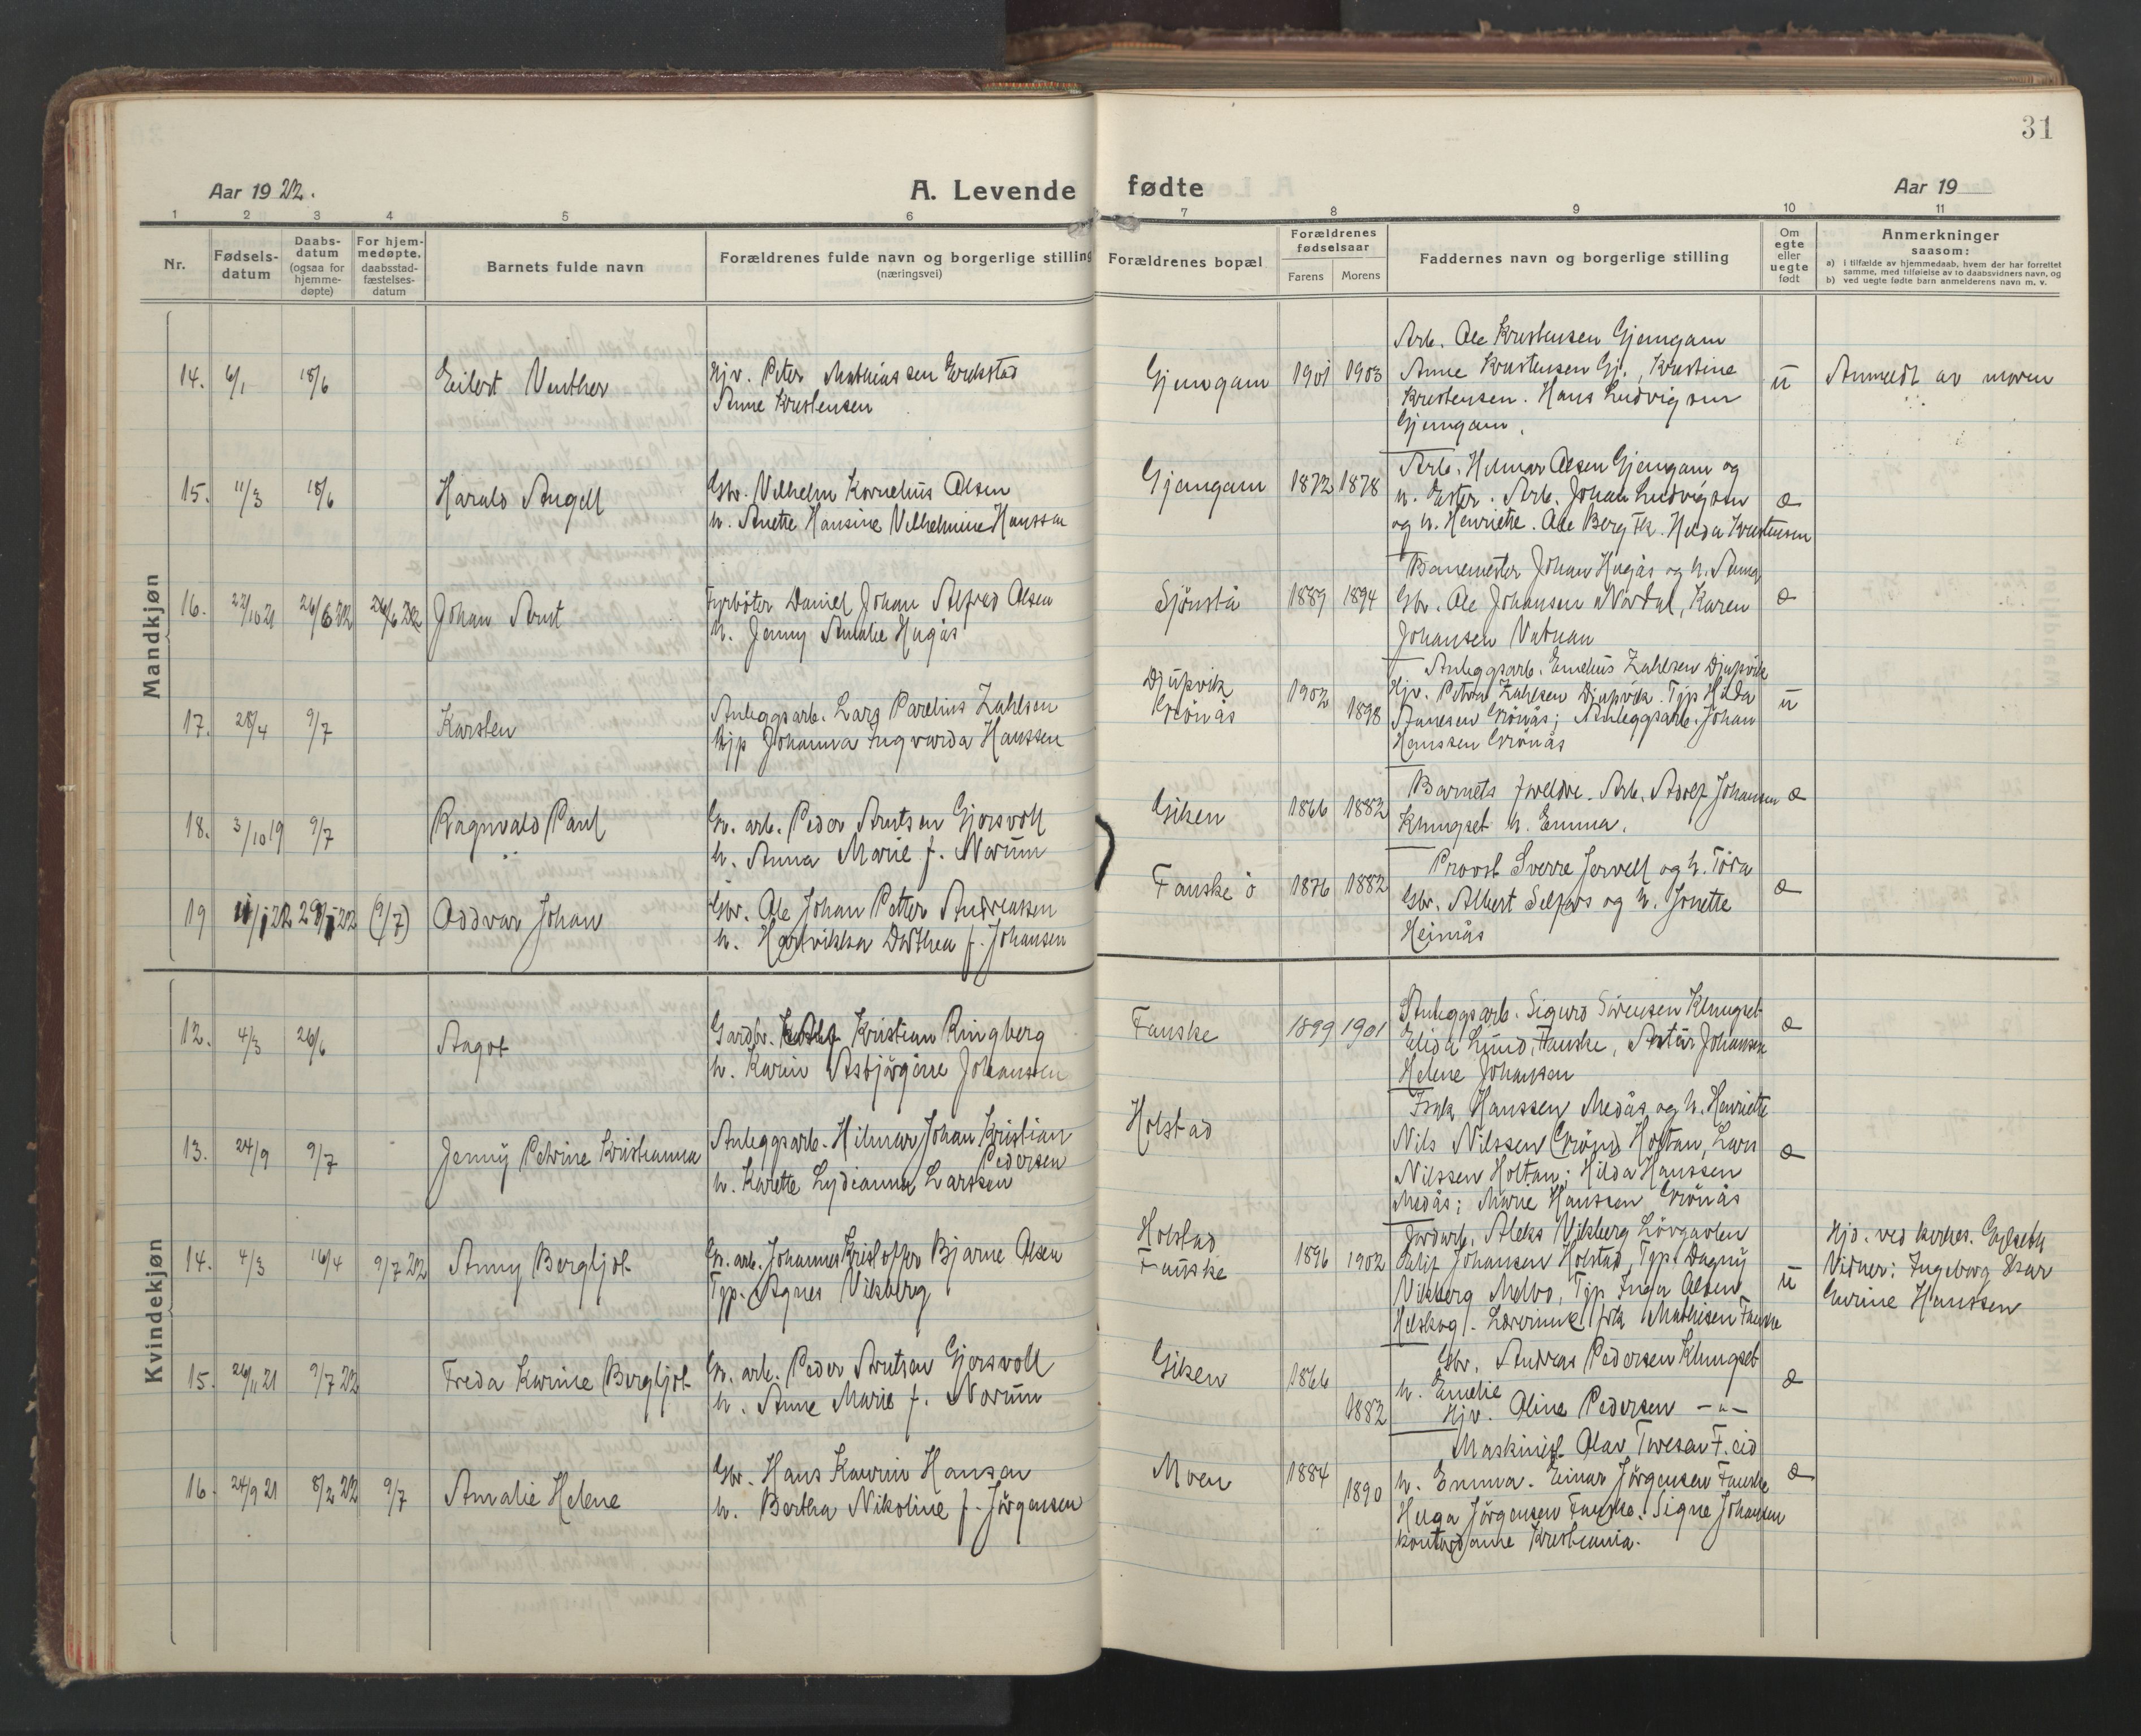 31
Aar 1922.
A. Levende fødte
Aar 19
1 2 3 4 5 6 7 8 9 10 11
Nr.
Fødsels-
datum
Daabs-
datum
(ogsaa for
hjemme-
døpte)
For hjem-
medøpte,
daabsstad-
fæstelses-
datum
Barnets fulde navn
Forældrenes fulde navn og borgerlige stilling
(næringsvei)
Forældrenes bopæl
Forældrenes
fødselsaar
Farens Morens
Faddernes navn og borgerlige stilling
Om
egte
eller
uegte
født
Anmerkninger
saasom:
a) i tilfælde av hjemmedaab, hvem der har forrettet
samme, med tilføielse av to daabsvidners navn, og
b) ved uegte fødte barn anmelderens navn m. v.
Mandkjøn
14. 6/1 18/6 Eilert
Hjv. Peter Mathiassen Erikstad
Anne Kristensen
Gjemgam 1901 1903
Arb. Ole Kristensen Gjemgam
Anne Kristensen Gj., Kristine
Kristensen. Hans Ludvigsen
Gjemgam.
u Anmeldt av moren
15. 11/3 18/6 Harald Angell
Gbr. Vilhelm Kornelius Olsen
h. Anette Hansine Vilhelmine Hanssen
Gjemgam 1872 1878
Arb. Hilmar Olsen Gjemgam og
h. Ester. Arb. Johan Ludvigsen
og h. Henriette. Ole Berg Fk. Hilda Kristensen
æ
16. 22/10 21 26/6 22 26/6 22 Johan Arnt
Fyrbøter Daniel Johan Alfred Olsen
h. Jenny Amalie Hugås
Sjönstå 1889 1894
Banemester Johan Hugås og h. Anna
Gbr. Ole Johansen Nordal, Karen
Johansen Vatnan
æ
17. 28/4 9/7 Karsten
Anleggsarb. Lars Parelius Zahlsen
Johanna Ingvarda Hanssen
Djupvik
Grönås
1902
1898
Anleggsarb. Emelius Zahlsen Djupvik
Hjv. Petra Zahlsen Djupvik. Tjp Hilda
Grönås; Anleggsarb. Johan
Hanssen Grönås
u
18. 3/10 19 9/7 Ragnvald Paul
Gr. arb. Peder Arntsen Gjersvoll
h. Anna Marie f. Norum
Giken 1866 1882
Barnets foreldre. Arb. Adolf Johansen
Klungset h. Emma.
æ
19 22 (9/7) Oddvar Johan
Gbr. Ole Johan Petter Andreassen
h. Hartvikka Dorthea f. Johansen
Fauske ö 1876 1882
Provst Sverre Jervell og h. Tora
Gbr. Albert Selfors og h. Jonette
Heimås
æ
Kvindekjøn
12. 4/3 26/6 Aagot
Gardbr. Kristian Ringberg
h. Karin Asbjörgine Johanssen
Fauske 1899 1901
Anleggsarb. Sigurd Sörensen Klungset
Elida Lund, Fauske, Johansen
Helene Johansen
æ
13. 24/9 9/7 Jenny Petrine Kristianna
Anleggsarb. Hilmar Johan Kristian
Pedersen
h. Karette Lydianna Larssen
Holstad
Hanssen Medås og h. Henriette
Nils Nilssen Holtan, Lars
Nilssen Holtan; Hilda Hanssen
Medås; Marie Hanssen Grönås
æ
14. 4/3 16/4 9/7 22 Anny Bergljot
Gr. arb. Johannes Kristoffer Bjarne Olsen
Tjp. Agnes Vikberg
Holstad
Fauske
1896 1902
Jordarb. Aleks Vikberg Lövgavlen
Johansen Holstad, Tjp. Dagny
Vikberg Melbo, Tjp Inga Olsen
Lærerinne frk Mathisen Fauske
u
Hjd. ved
Vidner: Ingeborg
Hanssen
15. 26/11 21 9/7 22 Freda Karine Bergljot
Gr. arb. Peder Arntsen Gjersvoll
h. Anne Marie f. Norum
Giken 1866
1882
Gbr. Andreas Pedersen Klungset
h. Emelie
Hjv. Oline Pedersen —"—
æ
16. 24/9 21 8/2 22 9/7 Amalie Helene
Gbr. Hans Kaurin Hansen
h. Bertha Nikoline f. Jörgensen
Moen 1884
1890
Maskinist Olav F. eid
h. Emma. Einar Jörgensen Fauske
Helga Jörgensen Fauske. Signe Johansen
kontordame Kristiania.
æ